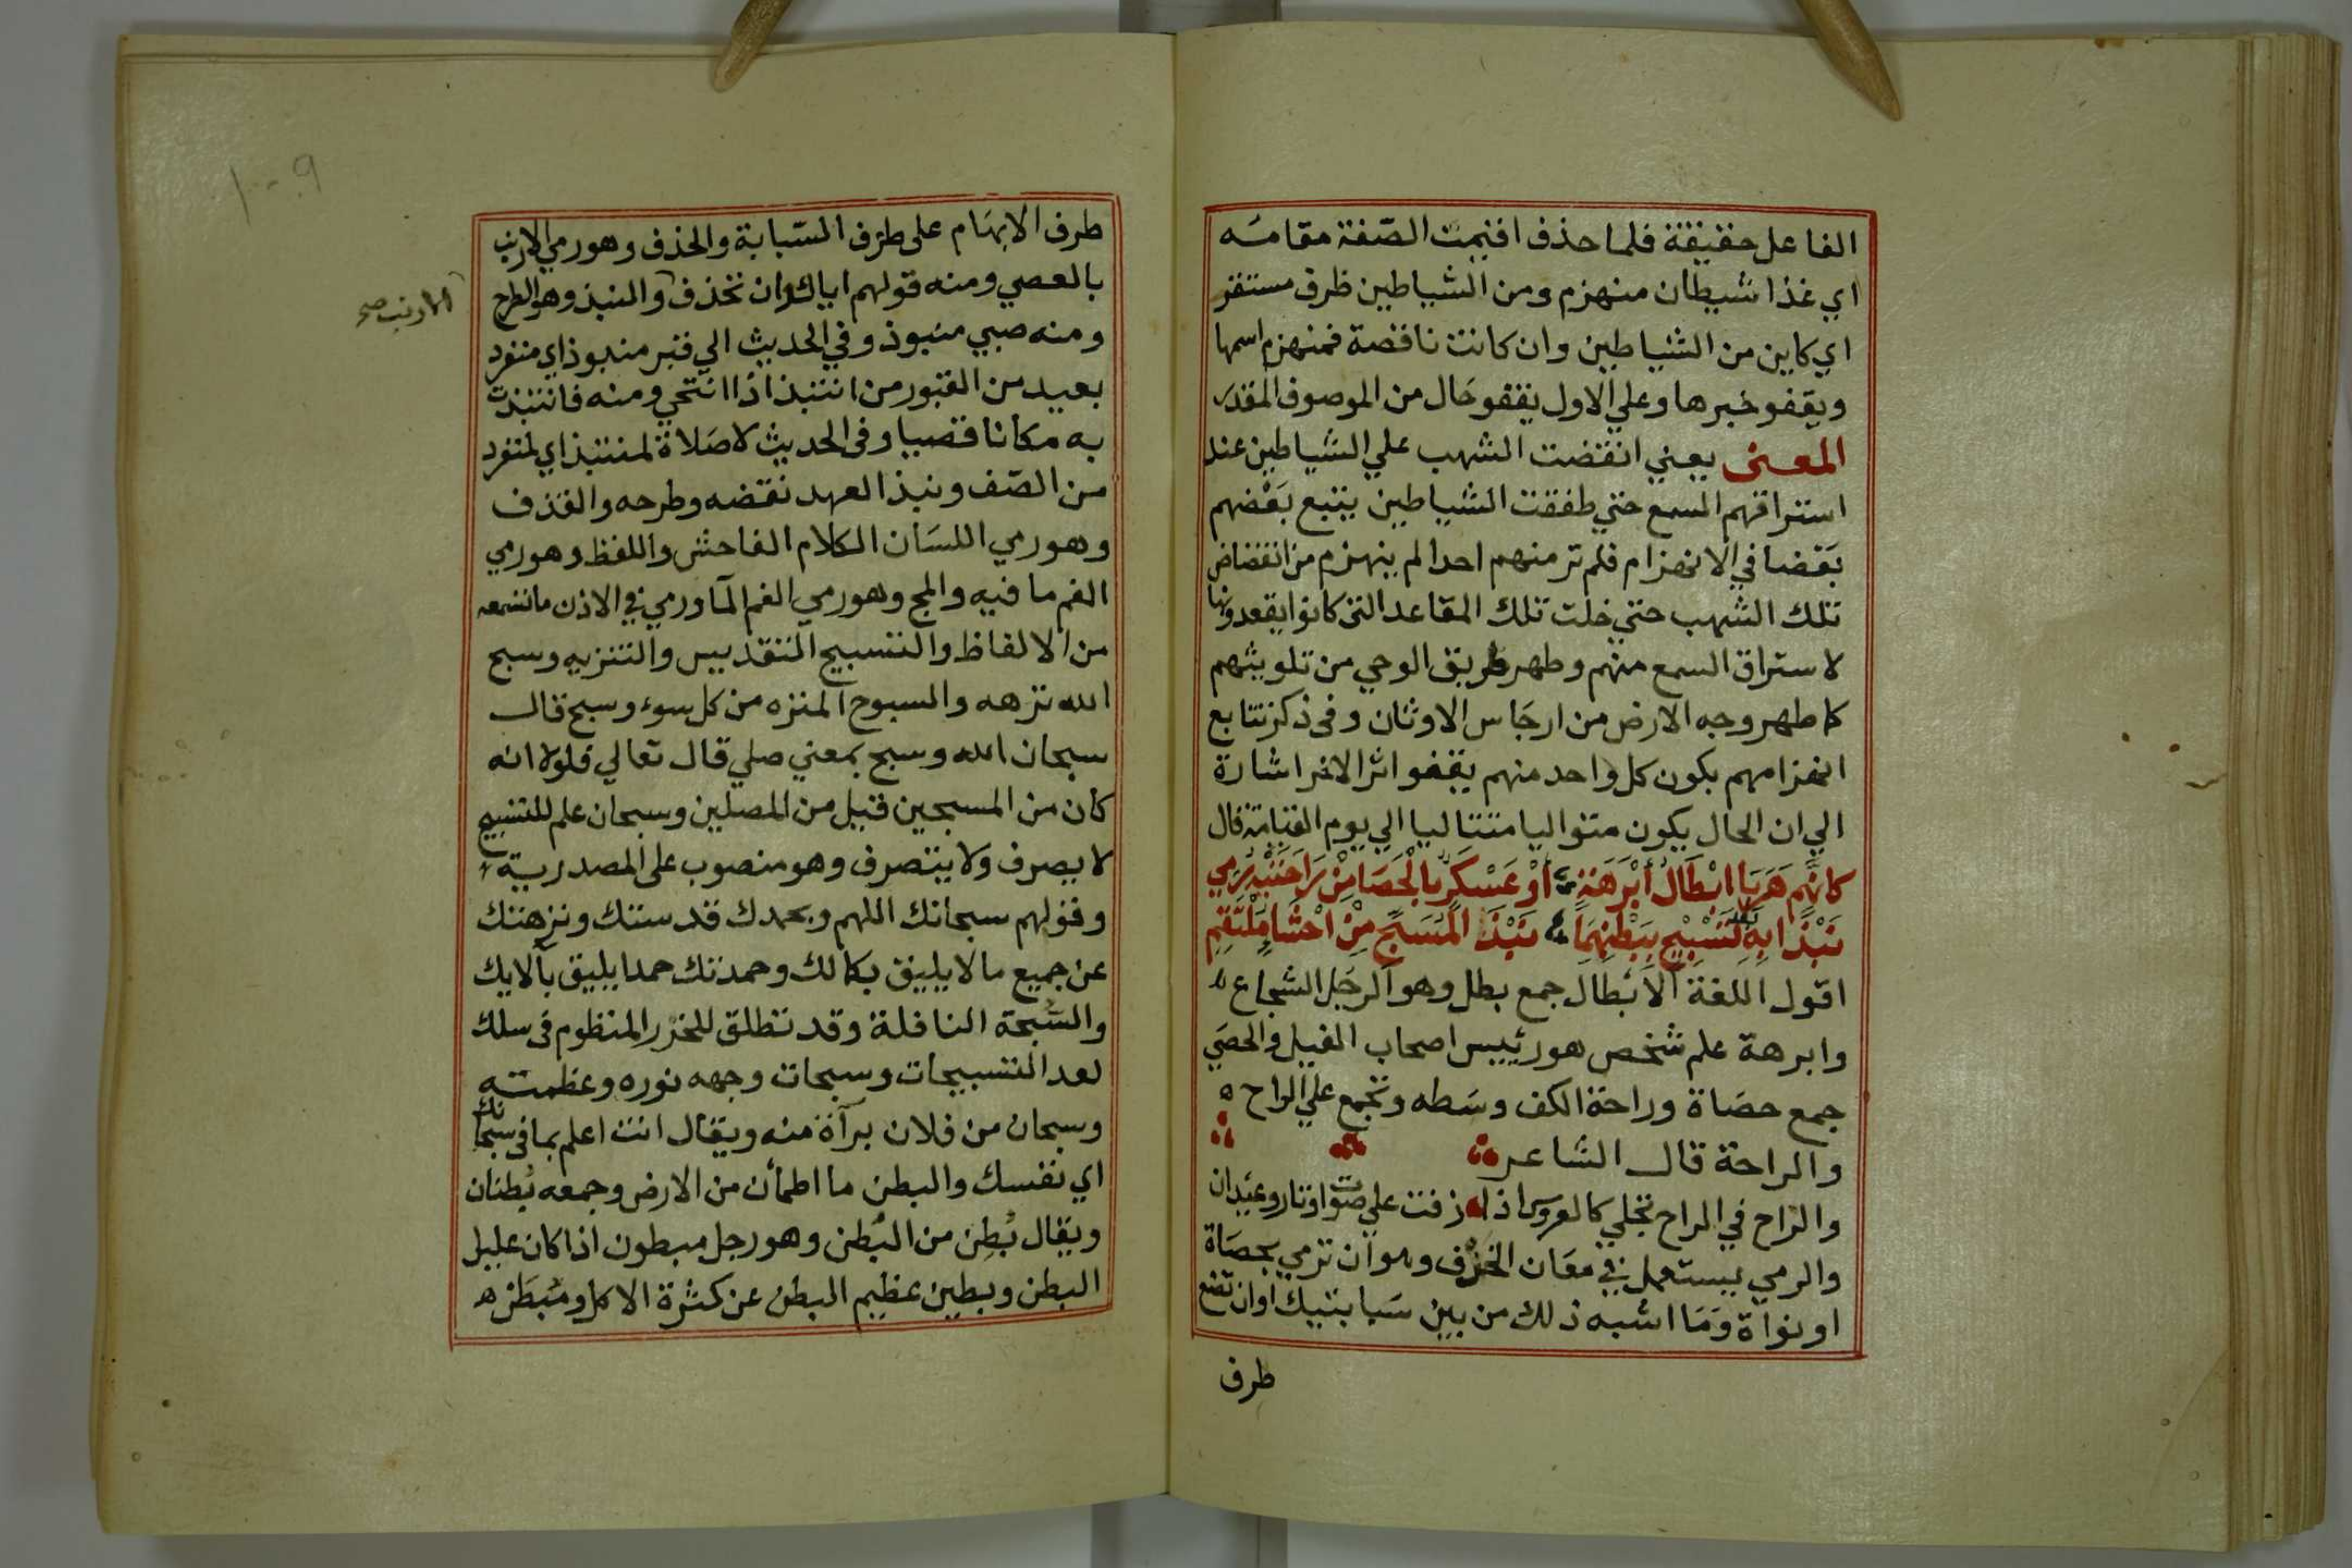 الفاعل حقيقة فلما حذف اقيمت الصّفة مقامه
اي غذا شيطان منهزم ومن الشياطين ظرف مستقر
اي كاين من الشياطين وان كانت ناقصة فمنهزم اسمها
ويقفو خبرها وعلي الاول يقفو حَال من الموصوف المقدر
المعنى يعني انقضت الشهب علي الشياطين عند
استراقهم السمع حتي طفقت الشياطين يتبع بَعْضهم
بَعْضا في الانهزام فلم تر منهم احدا لم ينهزم من انقضاض
تلك الشهب حتي خلت تلك المقاعد التي كانوا يقعدونها
لاستراق السمع منهم وطهر طريق الوحي من تلويثهم
كما طهر وجه الارض من ارجَاس الاوثان وفي ذكر تتابع
انهزامهم بكون كل واحد منهم يقفو اثر الاخر اشارة
الي ان الحال يكون متواليا متتاليا الي يوم القيامة قال
كَانَّهم هَرَبًا ابْطَالُ أَبْرَهَةٍ أوْ عَسْكَرٍ بالْحَصَا مِنْ رَاحَتَيْهِ رُمِي
نَبْذًا بِهِ بَعْدَ تَسْبِيْحٍ بِبَطْنِهِمَا نَبْذَ الْمُسَبِّحِ مِنْ احْشَا مُلْتَقِمِ
اقول اللغة الاَبْطال جمع بطل وهو الرجَل الشجاع
وابرهة علم شخص هو رئييس اصحاب الفيل والحصَي
جمع حصَاة وراحة الكف وسَطه وتجمع علي الراح
والراحة قال الشاعر
والرّاح في الراح تجلي كالعروس اذا زفت علي صوت اوتار وعيدان
والرمي يستعمل في معَان الخزف وهو ان ترمي بحصَاة
او نواة وَمَا اشبه ذلك من بين سَبابتيك او ان تضع
طرف
طرف الابهَام على طرَف السّبابة والحذف وهو رمي الارنب
بالعصي ومنه قولهم اياك وان تخذف والنبذ وهو الطرح
الارنب صح
ومنه صبي منبوذ وفي الحديث الي قبر منبوذ اي منفرد
بعيد من القبور من انتبذ اذا انتحي ومنه فانتبذت
به مكانا قصيا وفي الحديث لا صَلاة لمنتبذ اي لمنفرد
من الصّف ونبذ العهد نقضه وطرحه والقذف
وهو رمي اللسَان الكلام الفاحش واللفظ وهو رمي
الفم ما فيه والمج وهو رمي الفم المآ ورمي في الاذن ما تسمعه
من الالفاظ والتسبيح التقدييس والتنزيه وسبح
الله نزهه والسبوح المنزه من كل سوء وسبح قال
سبحان الله وسبح بمعني صلي قال تعالي فلولا انه
كان من المسبحين قيل من المصلين وسبحان علم للتسبيح
لا يصرف ولا يتصرف وهو منصوب على المصدرية
وقولهم سبحانك اللهم وبحمدك قدستك ونزهتك
عن جميع ما لا يليق بكمالك وحمدتك حمدا يليق بآلايك
والسُّبحة النافلة وقد تطلق للخرز المنظوم في سلك
لعد التسبيحات وسبحات وجهه نوره وعظمته
وسبحان من فلان برآة منه ويقال انت اعلم بما في سبحانك
اي نفسك والبطن ما اطمأن من الارض وجمعه بُطنان
ويقال بُطِن من البُطن وهو رجل مبطون اذا كان عليل
البطن وبطين عظيم البطن عن كثرة الاكل ومُبَطَّن